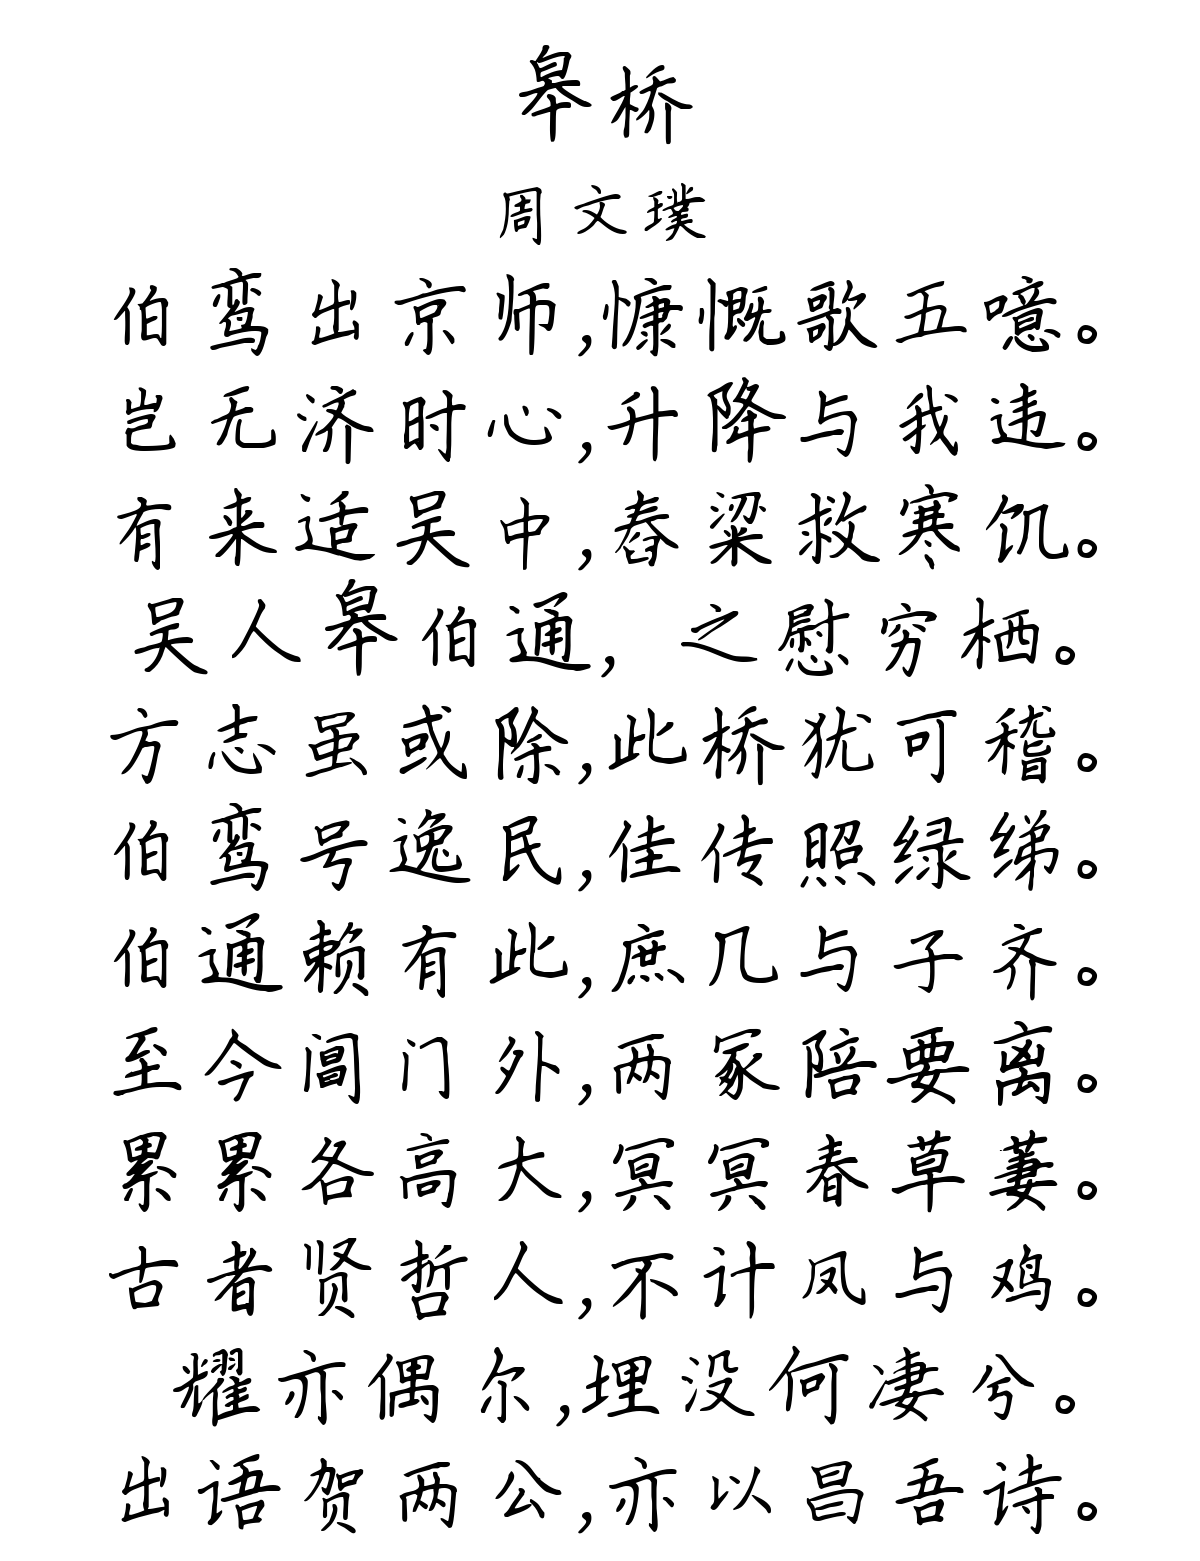 皋桥
周文璞
伯鸾出京师,慷慨歌五噫。
岂无济时心,升降与我违。
有来适吴中,舂粱救寒饥。
吴人皋伯通,之慰穷栖。
方志虽或除,此桥犹可稽。
伯鸾号逸民,佳传照绿绨。
伯通赖有此,庶几与子齐。
至今阊门外,两冢陪要离。
累累各高大,冥冥春草萋。
古者贤哲人,不计凤与鸡。
耀亦偶尔,埋没何凄兮。
出语贺两公,亦以昌吾诗。